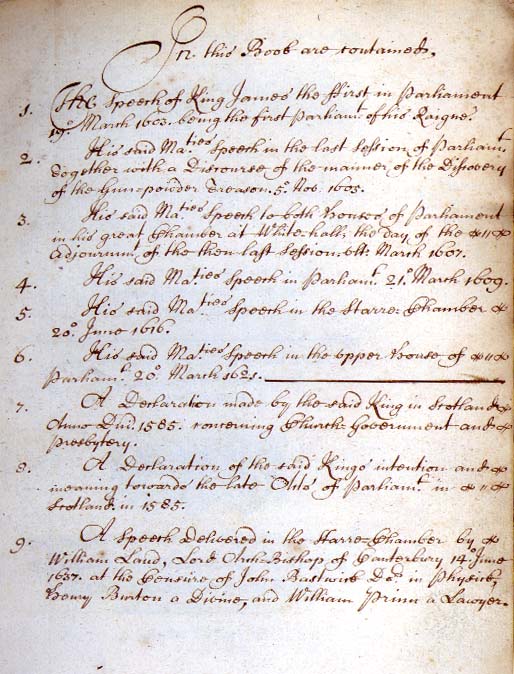 In this Book are contained,
1. The Speech of King James the ffirst in Parliament
19º March 1603. being the first Parliamt. of his Raigne.
2. His said Maties Speech in the last Session of Parliamt.
Together with a Discourse of the manner of the Discovery
of the Gun-powder Treason. 5º. Nov. 1605.
3. His said Maties Speech to both Houses of Parliament
in his great Chamber at White-hall: the day of the
Adjournmt of the then last Session. ult. March 1607.
4. His said Maties Speech in Parliamt. 21º March 1609.
5. His said Maties Speech in the Starre-Chamber
20º. June 1616.
6. His said Maties Speech in the upper House of
Parliamt. 20º. March
7. A Declaration made by the said King in Scotland
Anno Dñi. 1585. concerning Church-Government and
Presbytery.
8. A Declaration of the said Kings intention and
meaning towards the late Acts of Parliamt. in
Scotland: in 1585.
9. A Speech Delivered in the Starre-Chamber by
William Laud, Lord Arch-Bishop of Canterbury 14º June
1637. at the Censure of John Bastwick Dor. in Physick,
Henry Burton a Divine, and William Prinn a Lawyer.